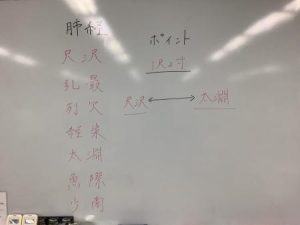 肺経
尺沢
孔最
列欠
経渠
太淵
魚際
少商
ポイント
1尺2寸
尺沢 太淵